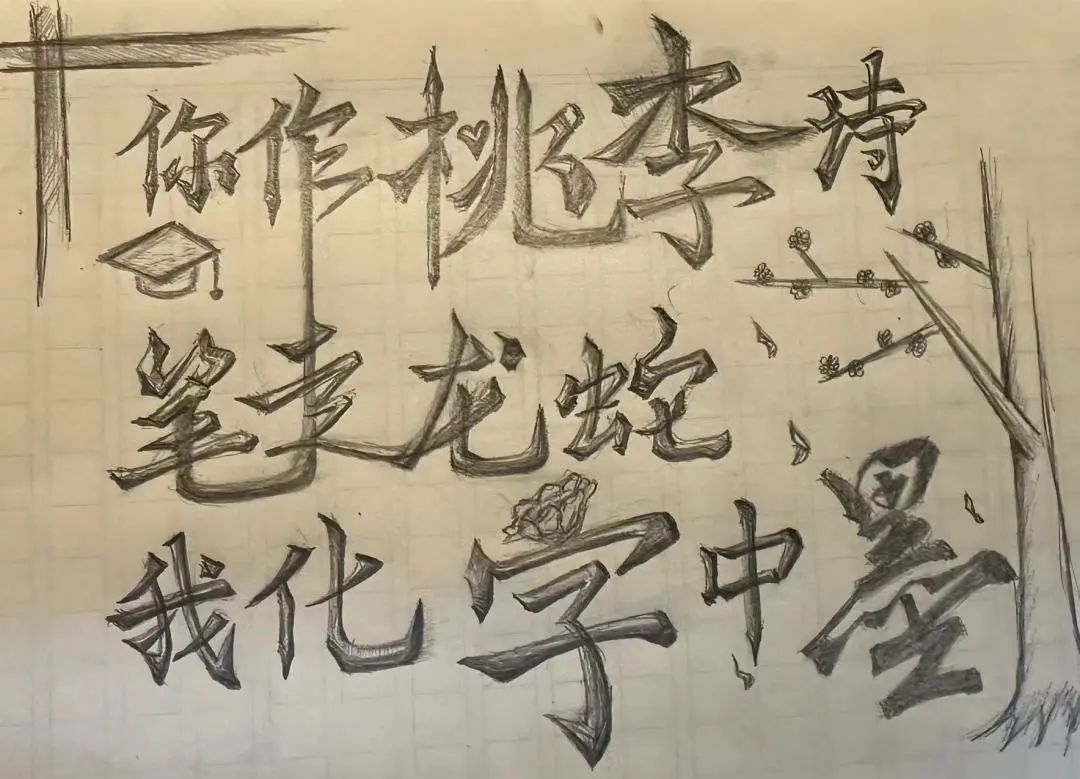 你作桃李待
笔走龙蛇
我化字中墨